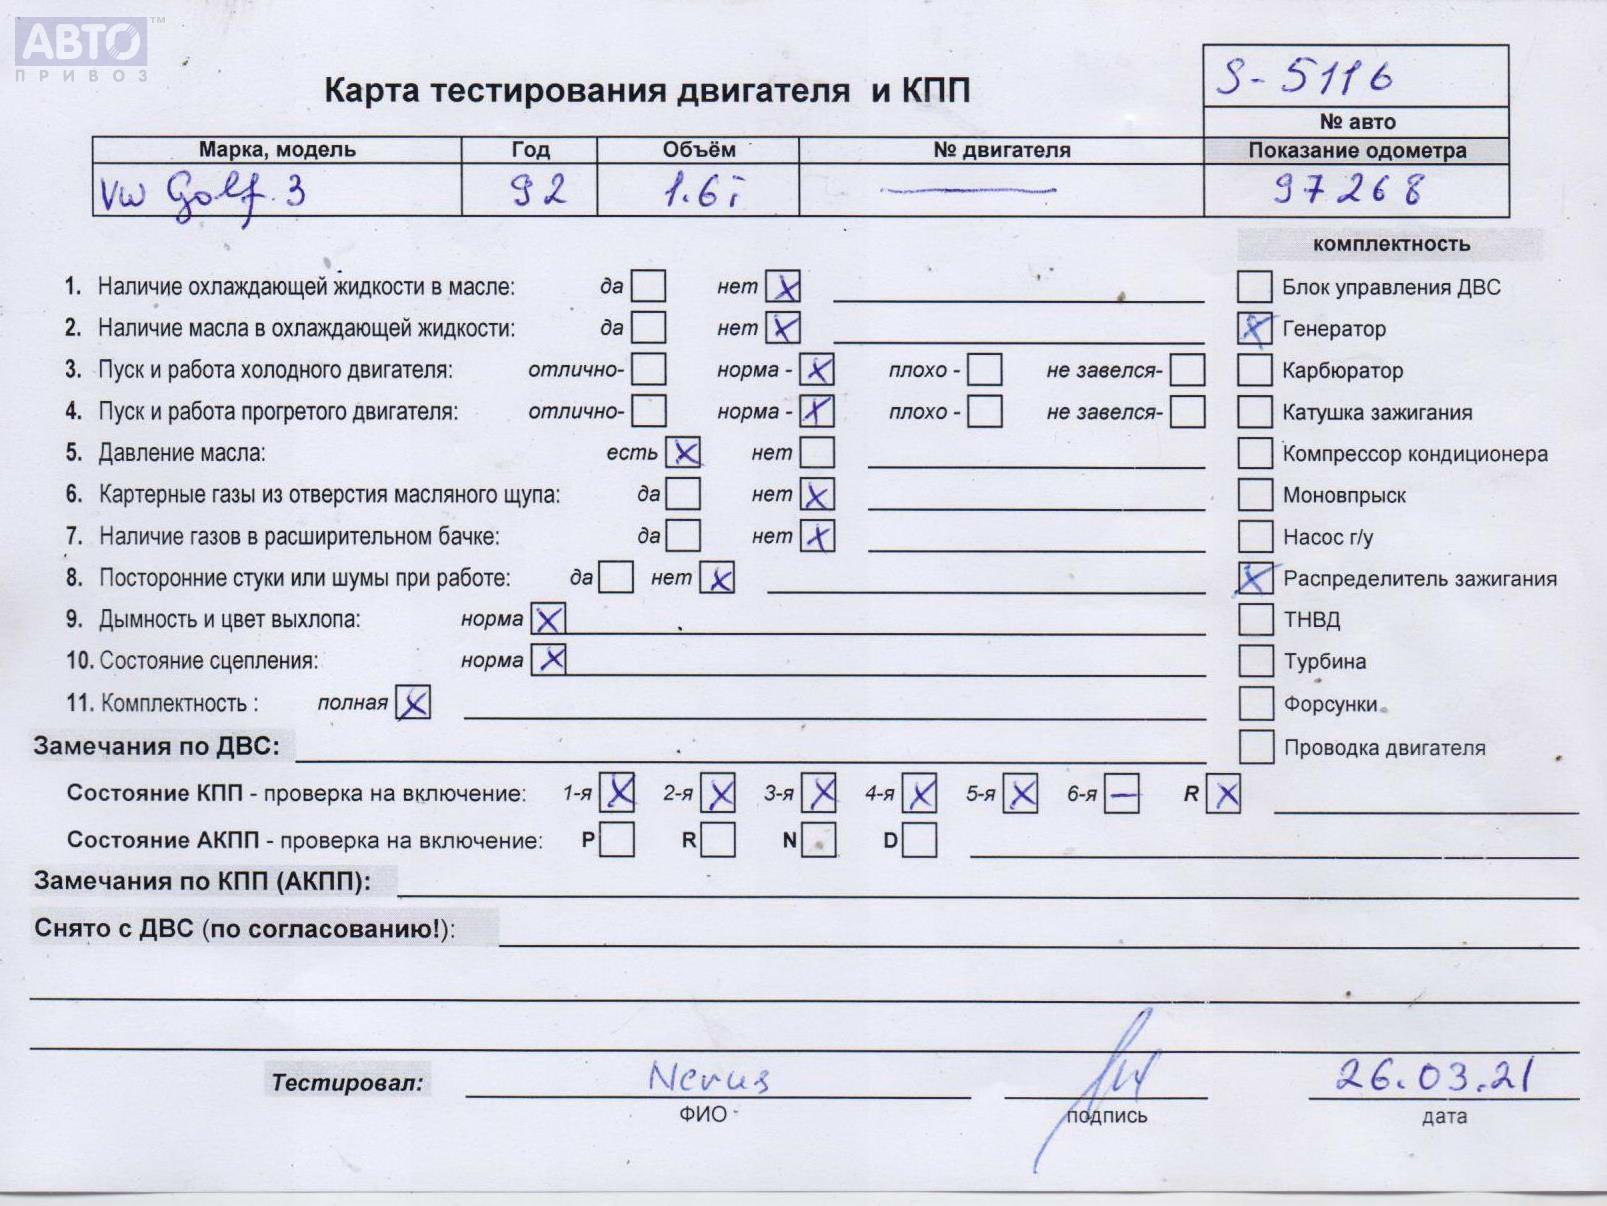 АВТО™
ПРИВОЗ
Карта тестирования двигателя и КПП
S-5116
№ авто
Марка, модель Год Объём № двигателя Показание одометра
VW Golf 3 92 1.6i — 97268
комплектность
1. Наличие охлаждающей жидкости в масле: да нет X Блок управления ДВС
2. Наличие масла в охлаждающей жидкости: да нет X X Генератор
3. Пуск и работа холодного двигателя: отлично- норма - X плохо - не завелся- Карбюратор
4. Пуск и работа прогретого двигателя: отлично- норма - X плохо - не завелся- Катушка зажигания
5. Давление масла: есть X нет Компрессор кондиционера
6. Картерные газы из отверстия масляного щупа: да нет X Моновпрыск
7. Наличие газов в расширительном бачке: да нет X Насос г/у
8. Посторонние стуки или шумы при работе: да нет X X Распределитель зажигания
9. Дымность и цвет выхлопа: норма X ТНВД
10. Состояние сцепления: норма X Турбина
11. Комплектность : полная X Форсунки
Замечания по ДВС: Проводка двигателя
Состояние КПП - проверка на включение: 1-я X 2-я X 3-я X 4-я X 5-я X 6-я — R X
Состояние АКПП - проверка на включение: P R N D
Замечания по КПП (АКПП):
Снято с ДВС (по согласованию!):
Тестировал: 26.03.21
ФИО подпись дата